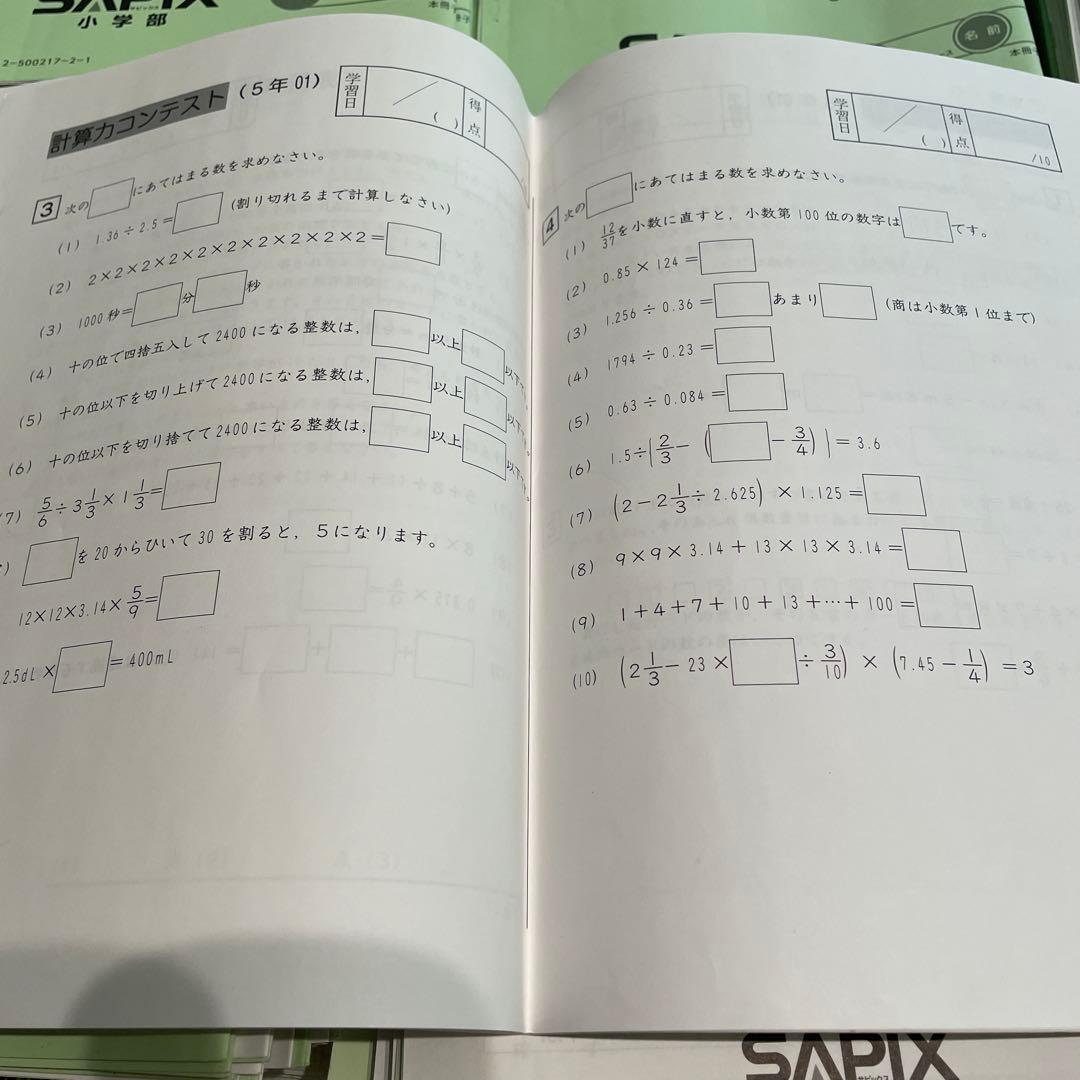 SAPIX
サピックス
小学部
2-500217-2-1
本冊子
名前
本冊子
計算力コンテスト (5年01)
学習日 / ( ) 得点
3 次の□にあてはまる数を求めなさい。
(1) 1.36÷2.5=□ (割り切れるまで計算しなさい)
(2) 2×2×2×2×2×2×2×2×2×2=□
(3) 1000秒=□分□秒
(4) 十の位で四捨五入して2400になる整数は,□以上□以下
(5) 十の位以下を切り上げて2400になる整数は,□以上□以下
(6) 十の位以下を切り捨てて2400になる整数は,□以上□以下
(7) 5/6÷3 1/3×1 1/3=□
) □を20からひいて30を割ると, 5になります。
12×12×3.14×5/9=□
2.5dL×□=400mL
学習日 / ( ) 得点 /10
4 次の□にあてはまる数を求めなさい。
(1) 12/37を小数に直すと, 小数第100位の数字は□です。
(2) 0.85×124=□
(3) 1.256÷0.36=□あまり□ (商は小数第1位まで)
(4) 1794÷0.23=□
(5) 0.63÷0.084=□
(6) 1.5÷{2/3-(□-3/4)}=3.6
(7) (2-2 1/3÷2.625)×1.125=□
(8) 9×9×3.14+13×13×3.14=□
(9) 1+4+7+10+13+…+100=□
(10) (2 1/3-23×□÷3/10)×(7.45-1/4)=3
SAPIX
サピックス